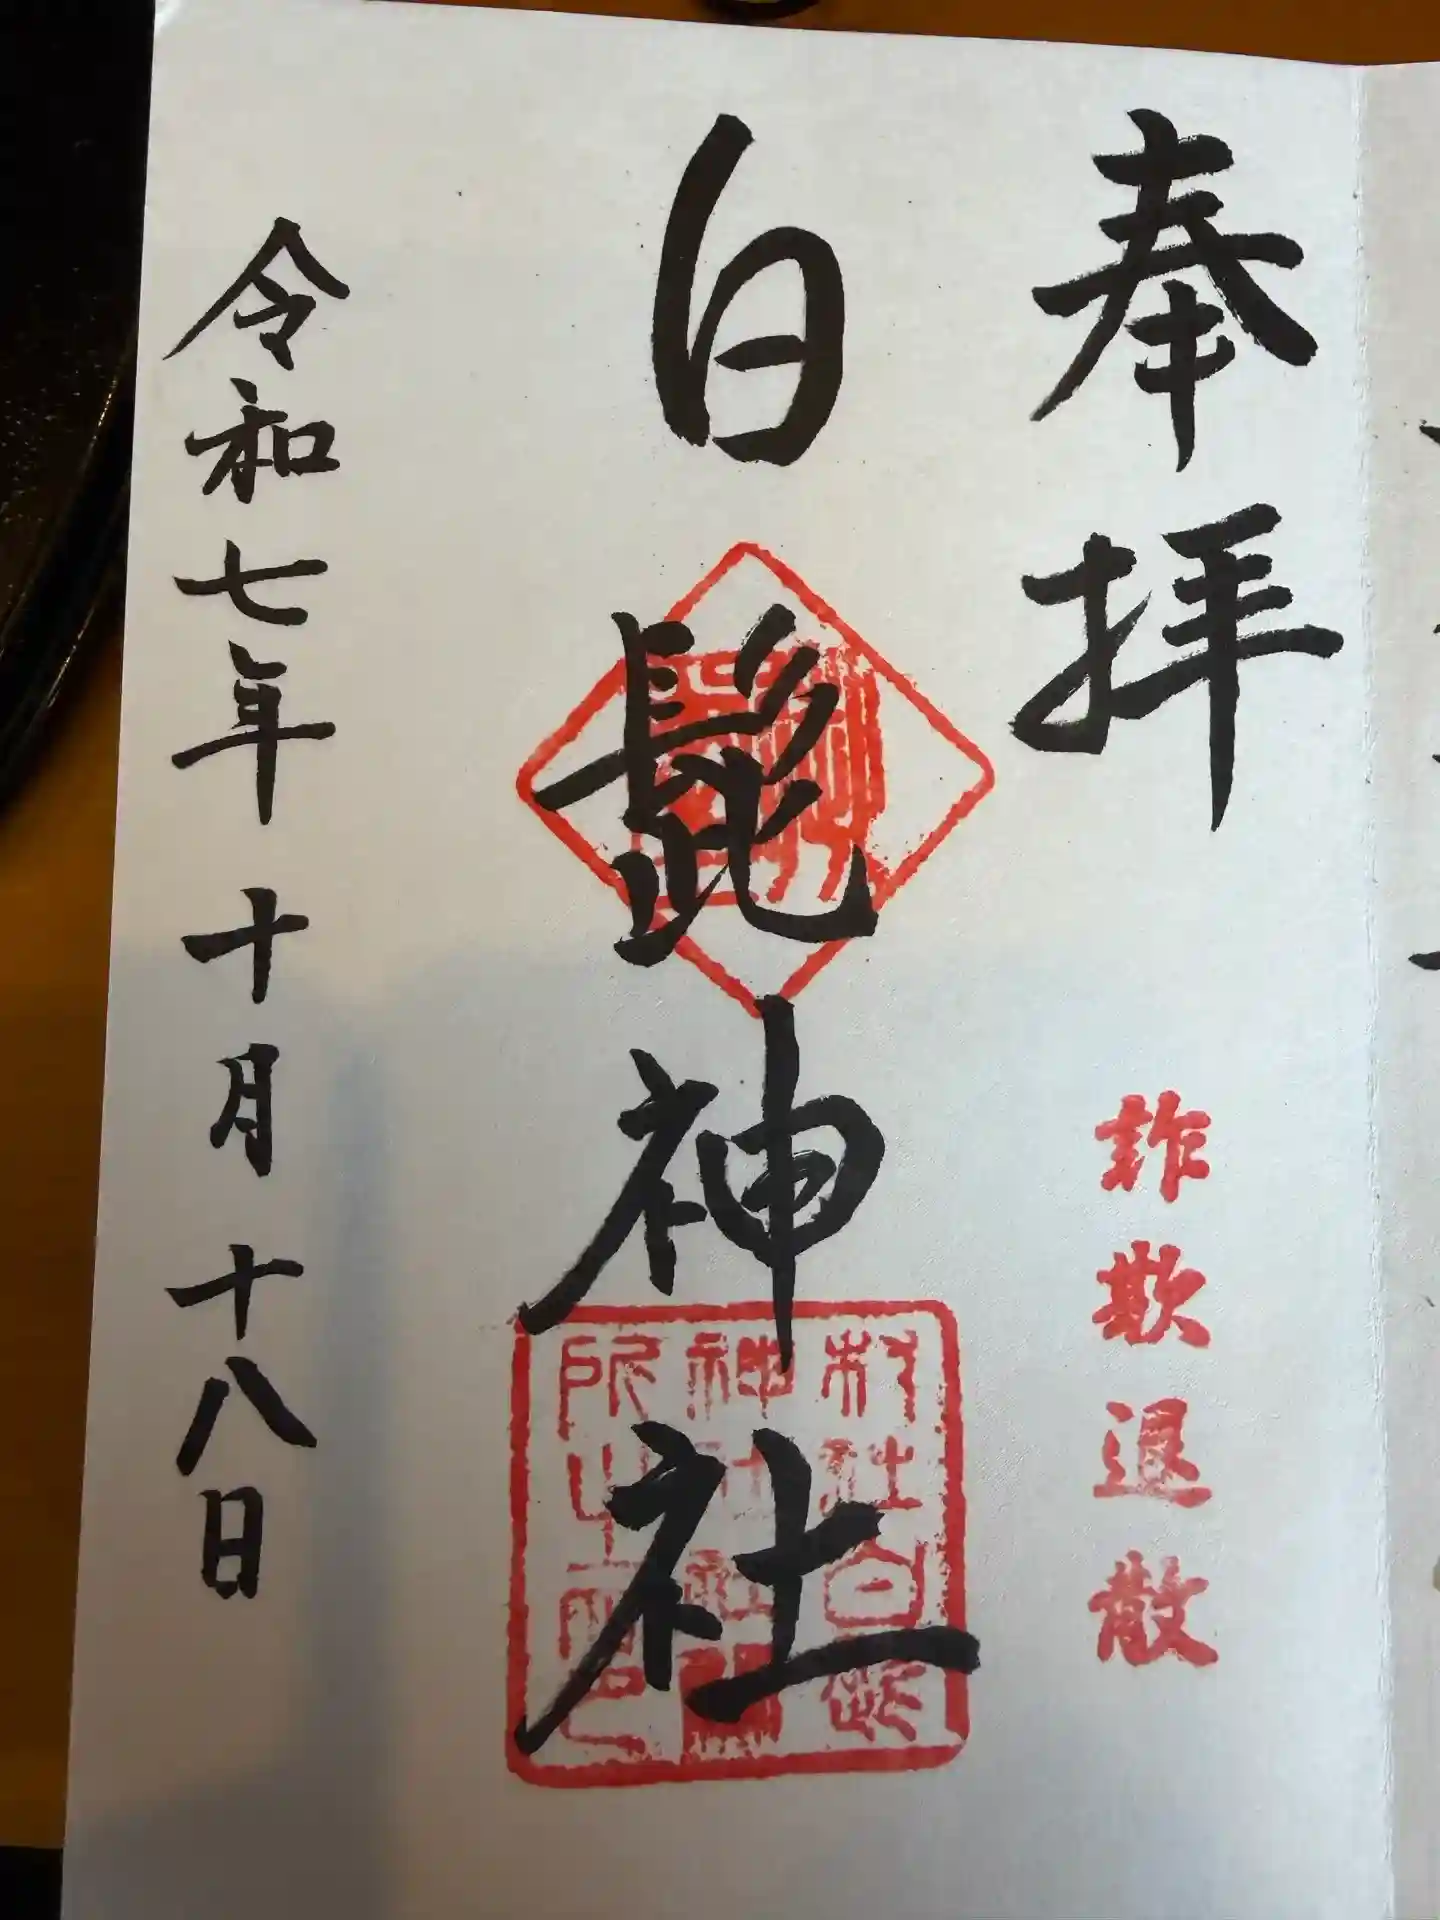 奉拝
詐欺退散
白髭神社
村社白髭
神社
令和七年十月十八日